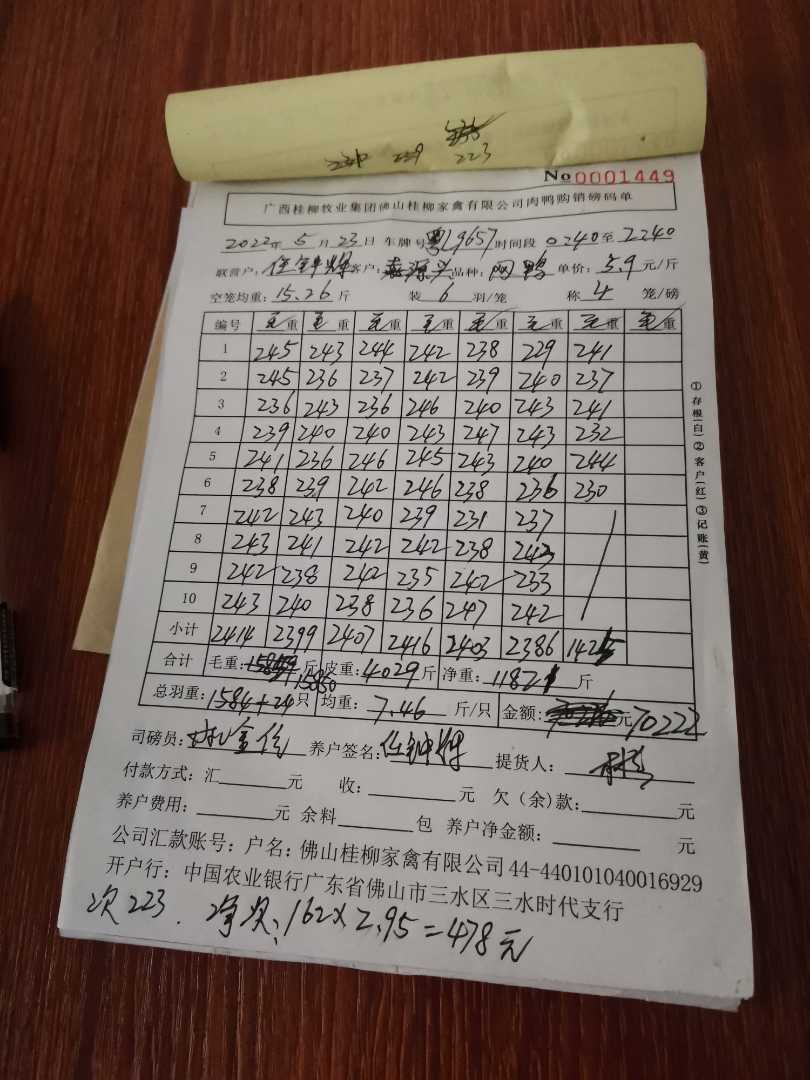 239 223
No 0001449
广西桂柳牧业集团佛山桂柳家禽有限公司肉鸭购销磅码单
2022年5月23日 车牌号 粤L9657 时间段 0240至2240
联营户: 任钟辉 客户: 源兴 品种: 网鸭 单价: 5.9 元/斤
空笼均重: 15.26 斤 装 6 羽/笼 称 4 笼/磅
编号 毛重 毛重 毛重 毛重 毛重 毛重 毛重 毛重
1 245 243 244 242 238 229 241
2 245 236 237 242 239 240 237
3 236 243 236 246 240 243 241
4 239 240 240 243 247 243 232
5 241 236 246 245 243 240 244
6 238 239 242 246 238 236 230
7 242 243 240 239 231 237
8 243 241 242 242 238 243
9 242 238 242 235 242 233
10 243 240 238 236 247 242
小计 2414 2399 2407 2416 2403 2386 1425
合计 毛重: 15850 斤 皮重: 4029 斤 净重: 11821 斤
总羽重: 1584+24 只 均重: 7.46 斤/只 金额: 元 70222
司磅员: 养户签名: 任钟辉 提货人:
付款方式: 汇 元 收: 元 欠(余)款: 元
养户费用: 元 余料 包 养户净金额: 元
公司汇款账号: 户名: 佛山桂柳家禽有限公司 44-440101040016929
开户行: 中国农业银行广东省佛山市三水区三水时代支行
次223. 净次: 162×2.95=478元
①存根(白)②客户(红)③记账(黄)